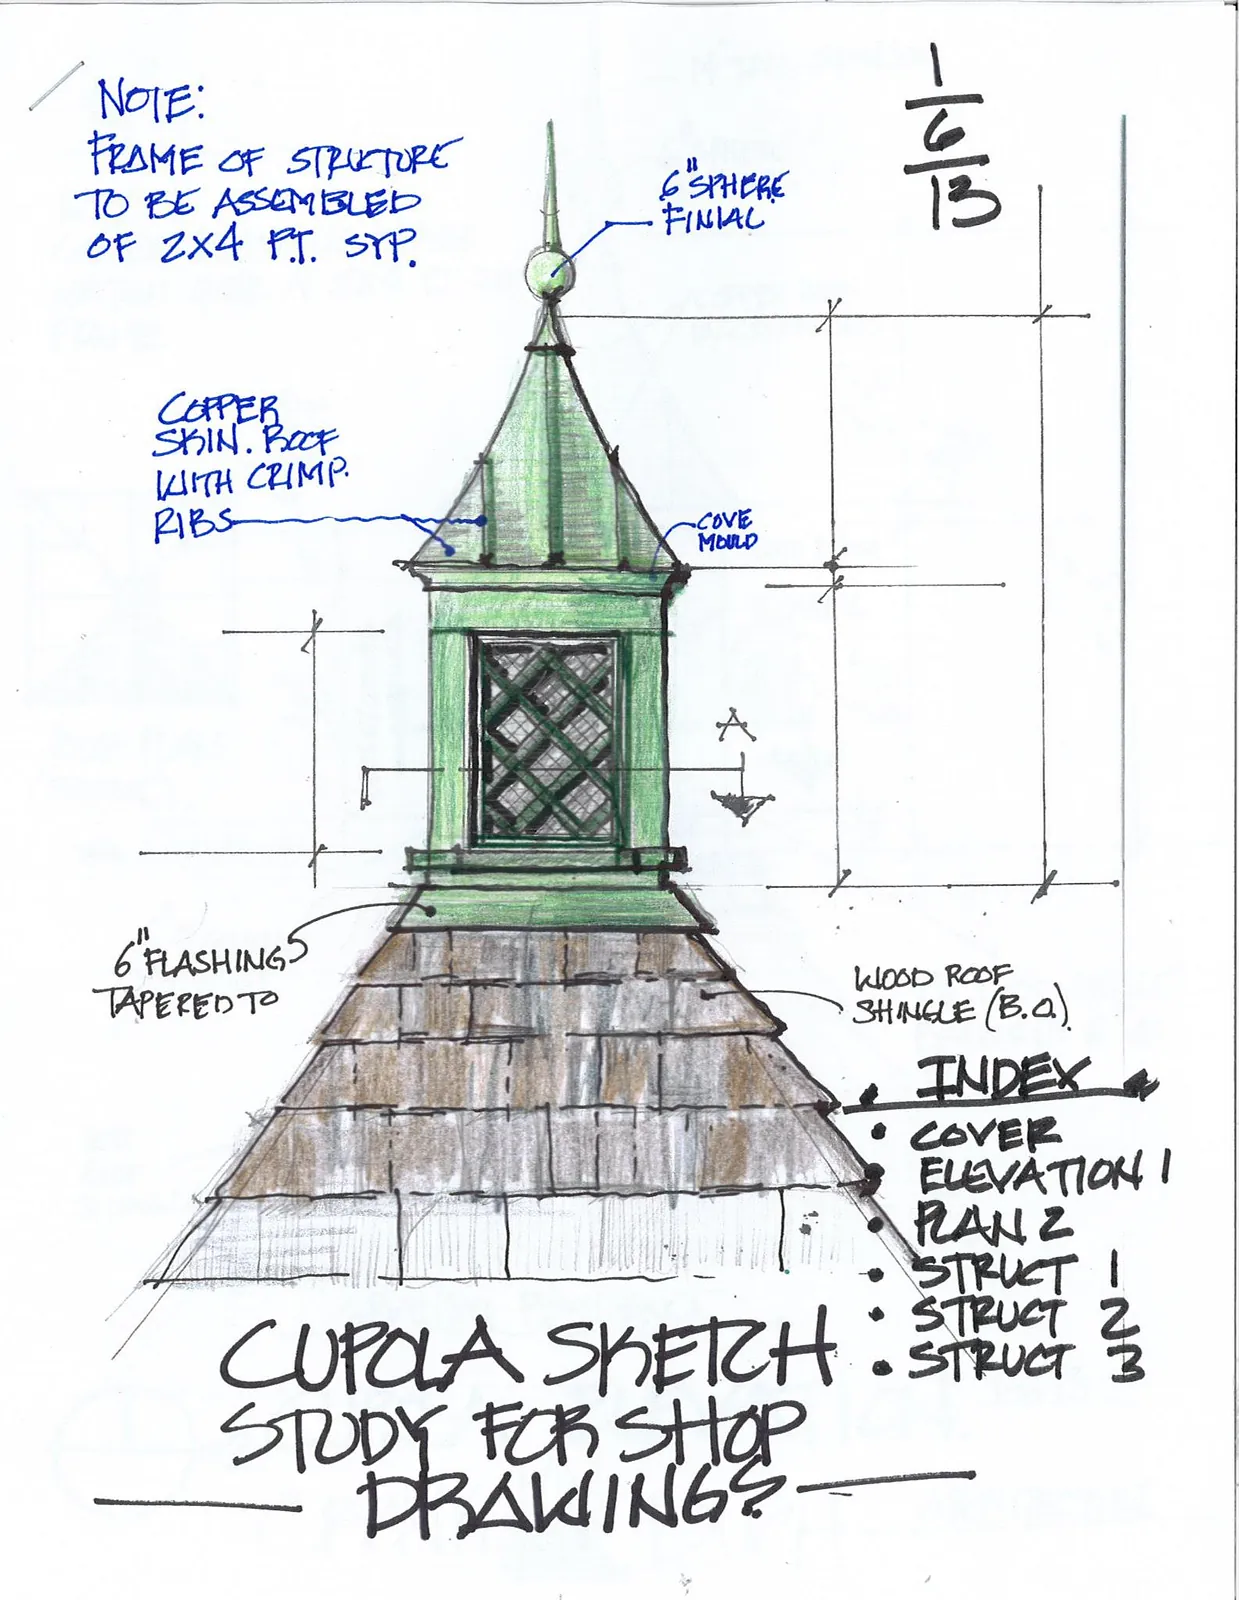 NOTE:
FRAME OF STRUCTURE
TO BE ASSEMBLED
OF 2X4 P.T. SYP.
1
6
13
6" SPHERE
FINIAL
COPPER
SKIN. ROOF
WITH CRIMP.
RIBS
COVE
MOULD
A
6" FLASHING
TAPERED TO
WOOD ROOF
SHINGLE (B.O.)
INDEX
• COVER
• ELEVATION 1
• PLAN 2
• STRUCT 1
• STRUCT 2
• STRUCT 3
CUPOLA SKETCH
STUDY FOR SHOP
DRAWINGS